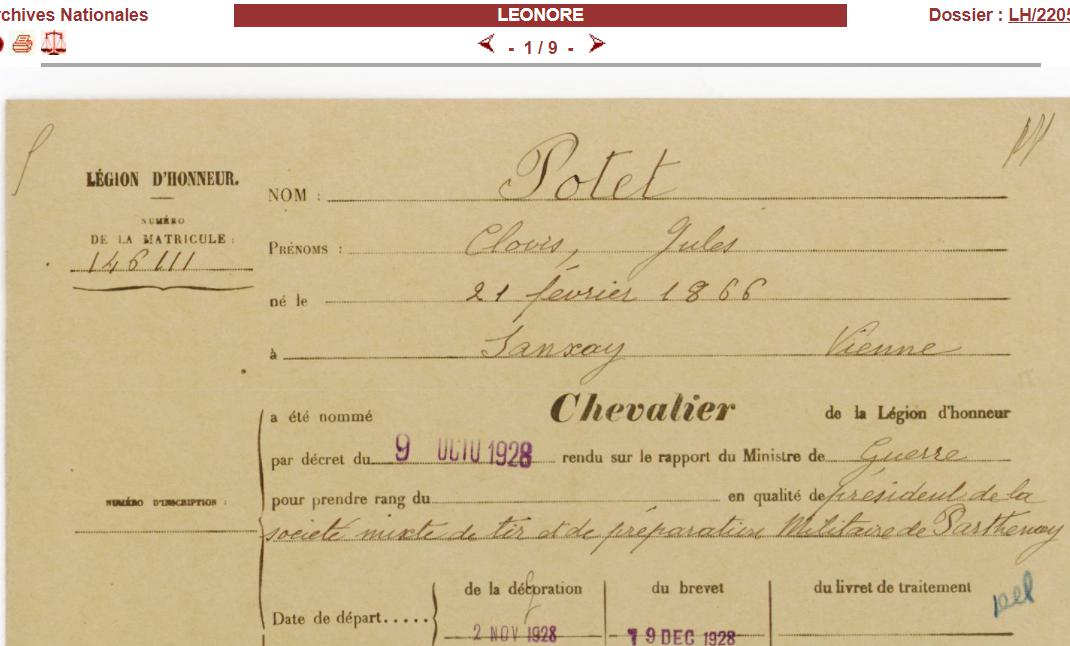 rchives Nationales LEONORE Dossier : LH/2205
- 1 / 9 -
LÉGION D'HONNEUR.
NUMÉRO
DE LA MATRICULE :
146111
NOM : Potet
PRÉNOMS : Clovis, Jules
né le 21 février 1866
à Sanxay Vienne
a été nommé Chevalier de la Légion d'honneur
par décret du 9 OCTO 1928 rendu sur le rapport du Ministre de Guerre
NUMÉRO D'INSCRIPTION :
pour prendre rang du en qualité de président de la
société mixte de tir et de préparation Militaire de Parthenay
de la décoration du brevet du livret de traitement
Date de départ.....
2 NOV 1928 19 DEC 1928